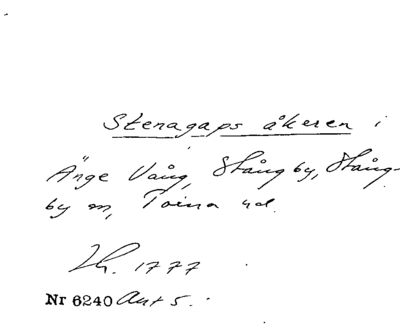 Stenagaps åkeren i
Änge Vång, Stångby, Stång-
by sn, Torna hd.
Lh. 1777
Nr 6240 Akt 5.